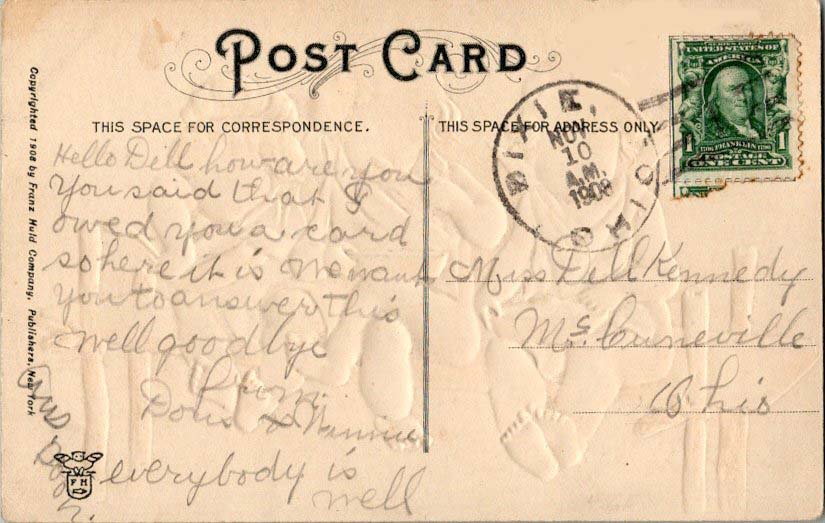 POST CARD
THIS SPACE FOR CORRESPONDENCE.
THIS SPACE FOR ADDRESS ONLY
Copyrighted 1908 by Franz Huld Company, Publishers, New York
UNITED STATES OF
AMERICA
1706 FRANKLIN 1790
1 POSTAGE 1
ONE CENT
DIXIE,
NOV
10
A.M.
1908
OHIO
Hello Dell how are you
You said that I
owed you a card
so here it is We want
You to answer this
Well good bye
from
Doris & Minnie
everybody is
well
Miss Dell Kennedy
McCuneville
Ohio
FH